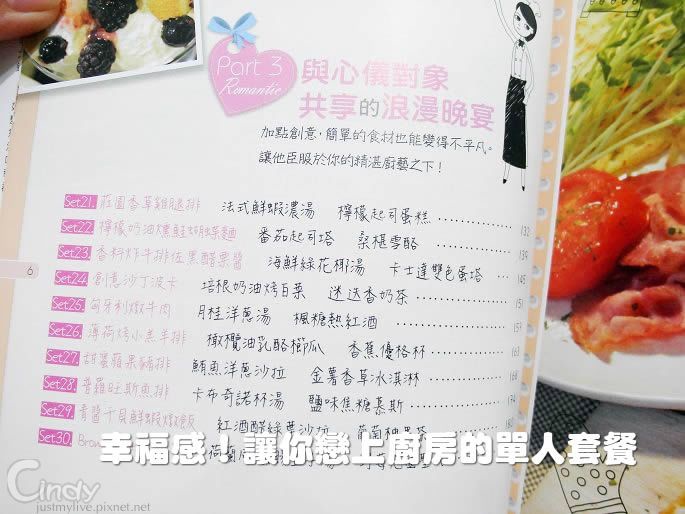 Part 3
Romantic
與心儀對象
共享的浪漫晚宴
加點創意，簡單的食材也能變得不平凡。
讓他臣服於你的精湛廚藝之下！
Set21. 莊園香草雞腿排 法式鮮蝦濃湯 檸檬起司蛋糕 132
Set22. 檸檬奶油燻鮭蝴蝶麵 番茄起司塔 桑椹雪酪 139
Set23. 香料炸牛排佐果醋果醬 海鮮綠花椰湯 卡士達雙色蛋塔 145
Set24. 創意沙丁波卡 培根奶油烤白菜 迷迭香奶茶 151
Set25. 匈牙利燉牛肉 月桂洋蔥湯 楓糖熱紅酒 159
Set26. 薄荷烤小羔羊排 橄欖油乳酪櫛瓜 香蕉優格杯 163
Set27. 甜蜜蘋果豬排 鮪魚洋蔥沙拉 金薯香草冰淇淋 168
Set28. 普羅旺斯魚排 卡布奇諾杯湯 鹽味焦糖慕斯 174
Set29. 青醬干貝鮮蝦燉飯 紅酒醋綠葉沙拉 葡萄柚果茶 180
Set30. Brow
6
幸福感！讓你戀上廚房的單人套餐
Cindy
justmylive.pixnet.net